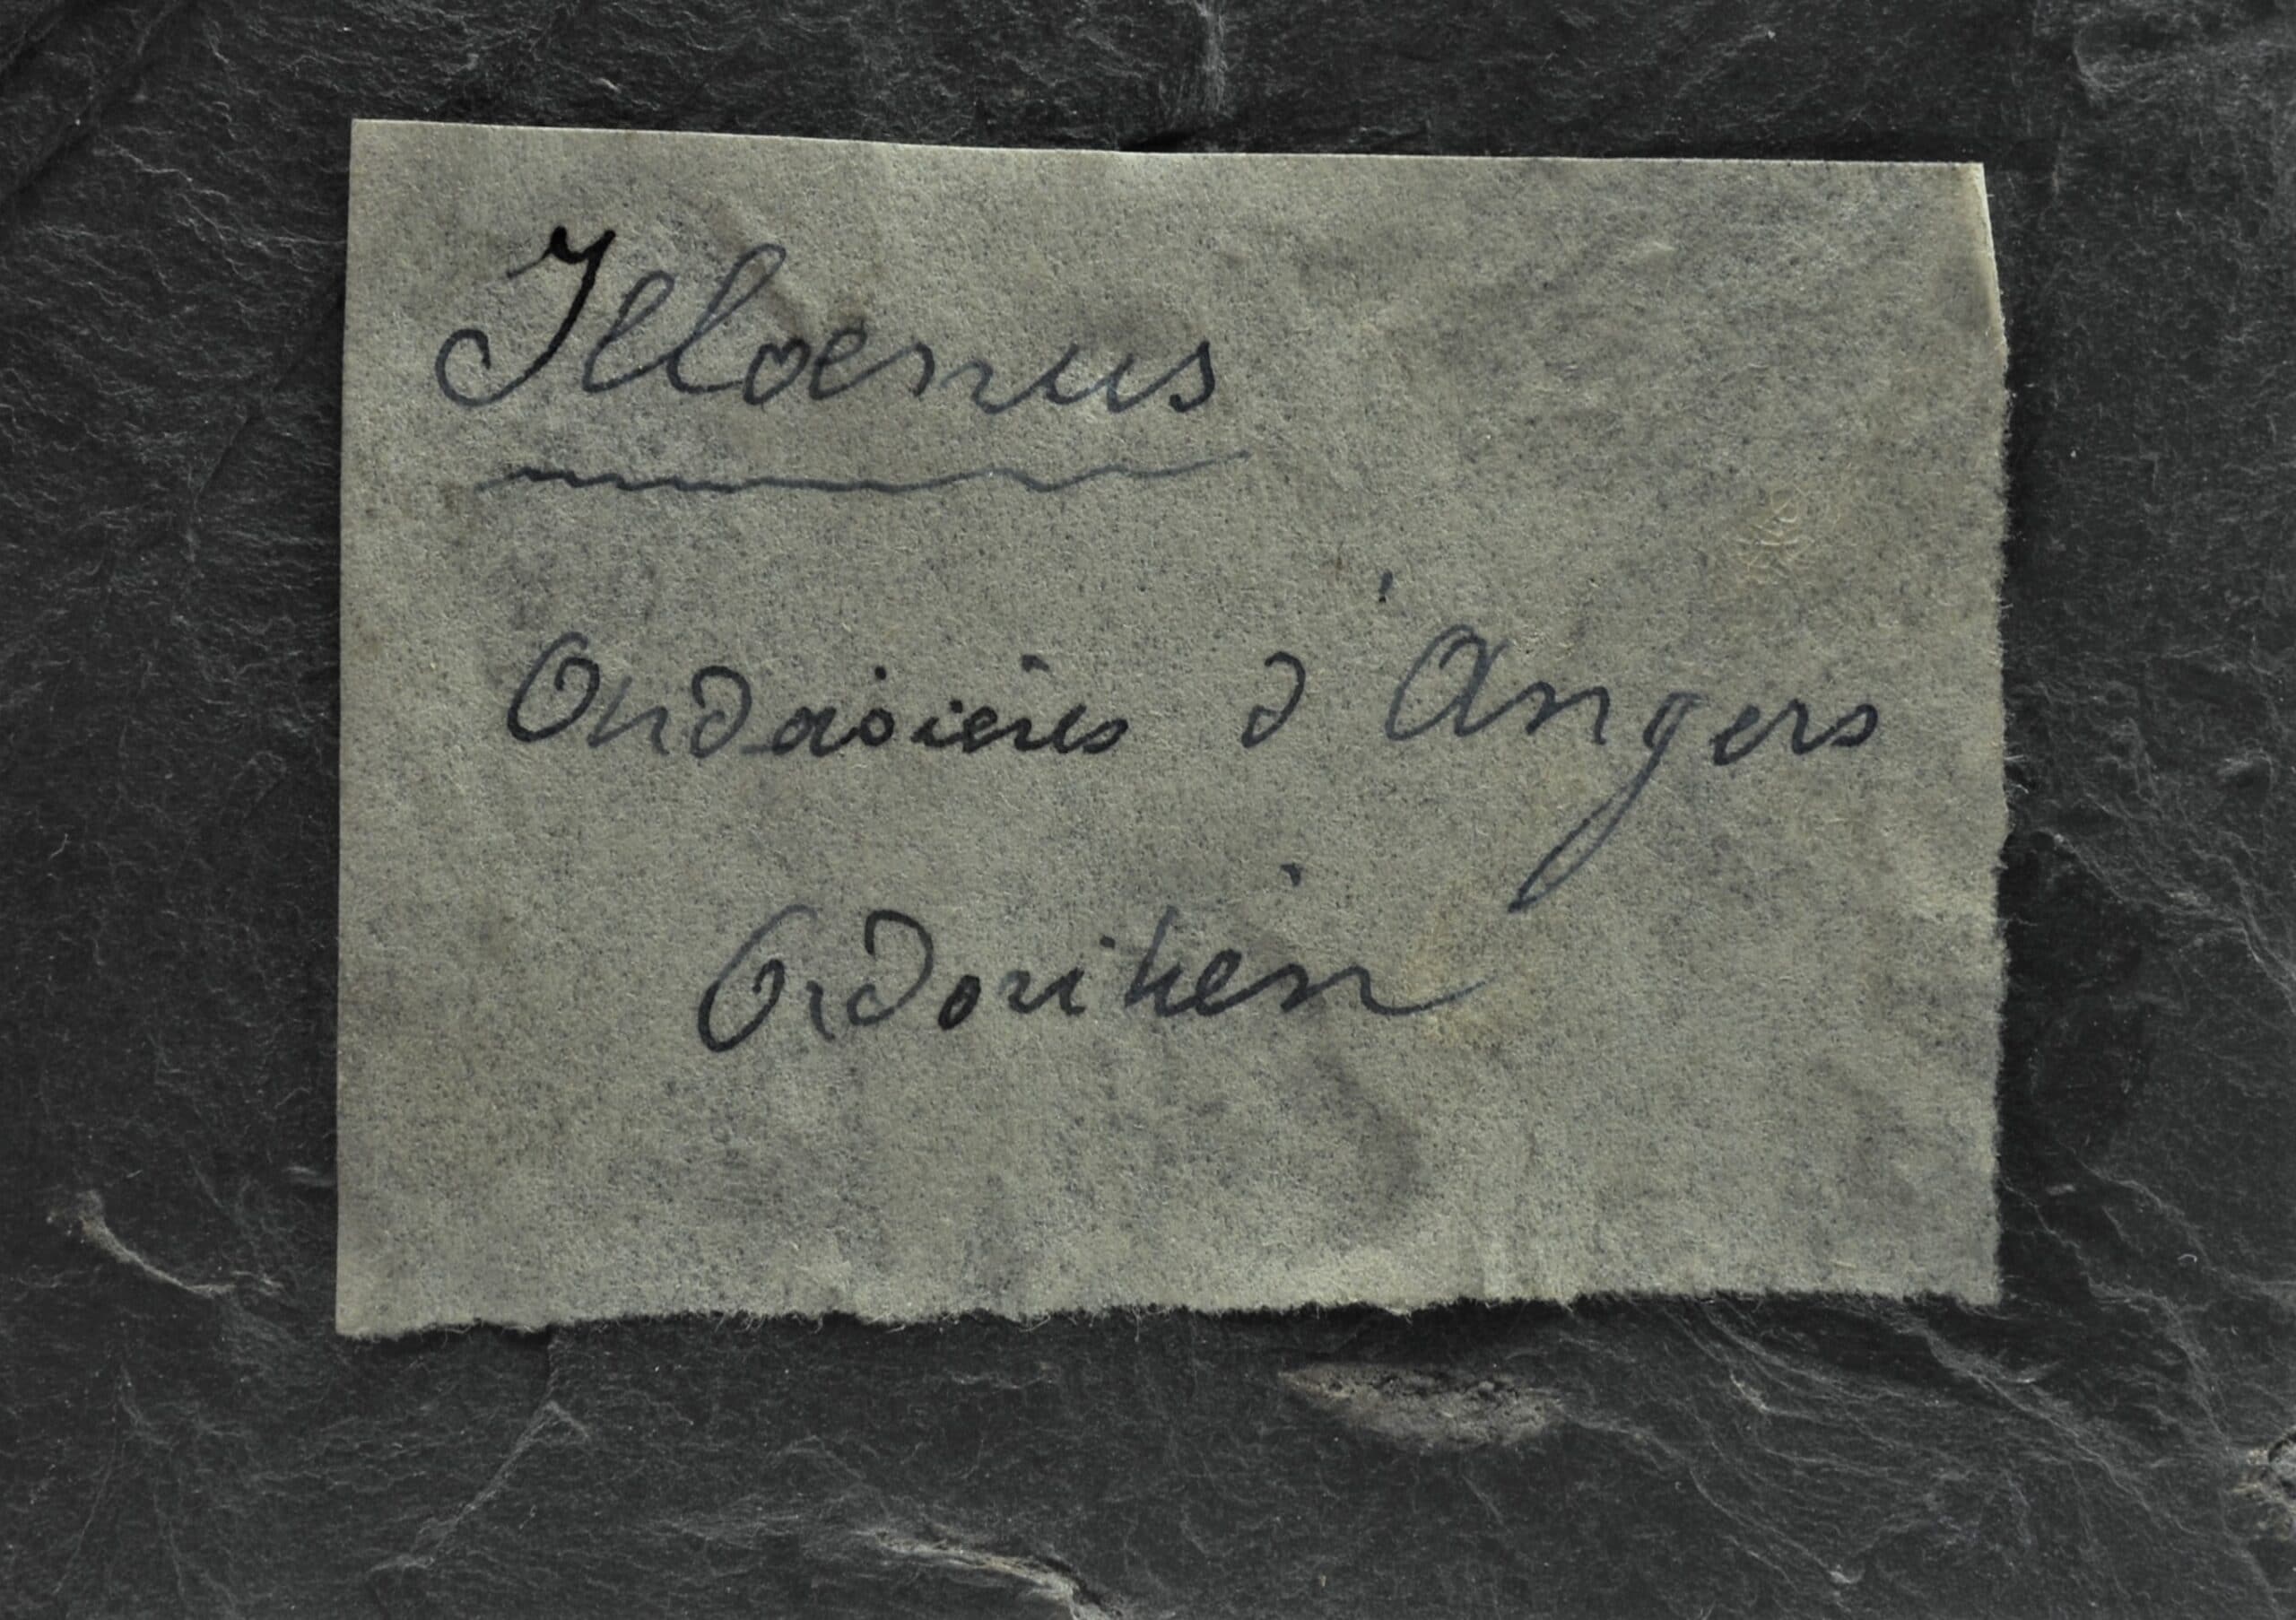 Illoenus
Ardoisières d'Angers
Ordovicien